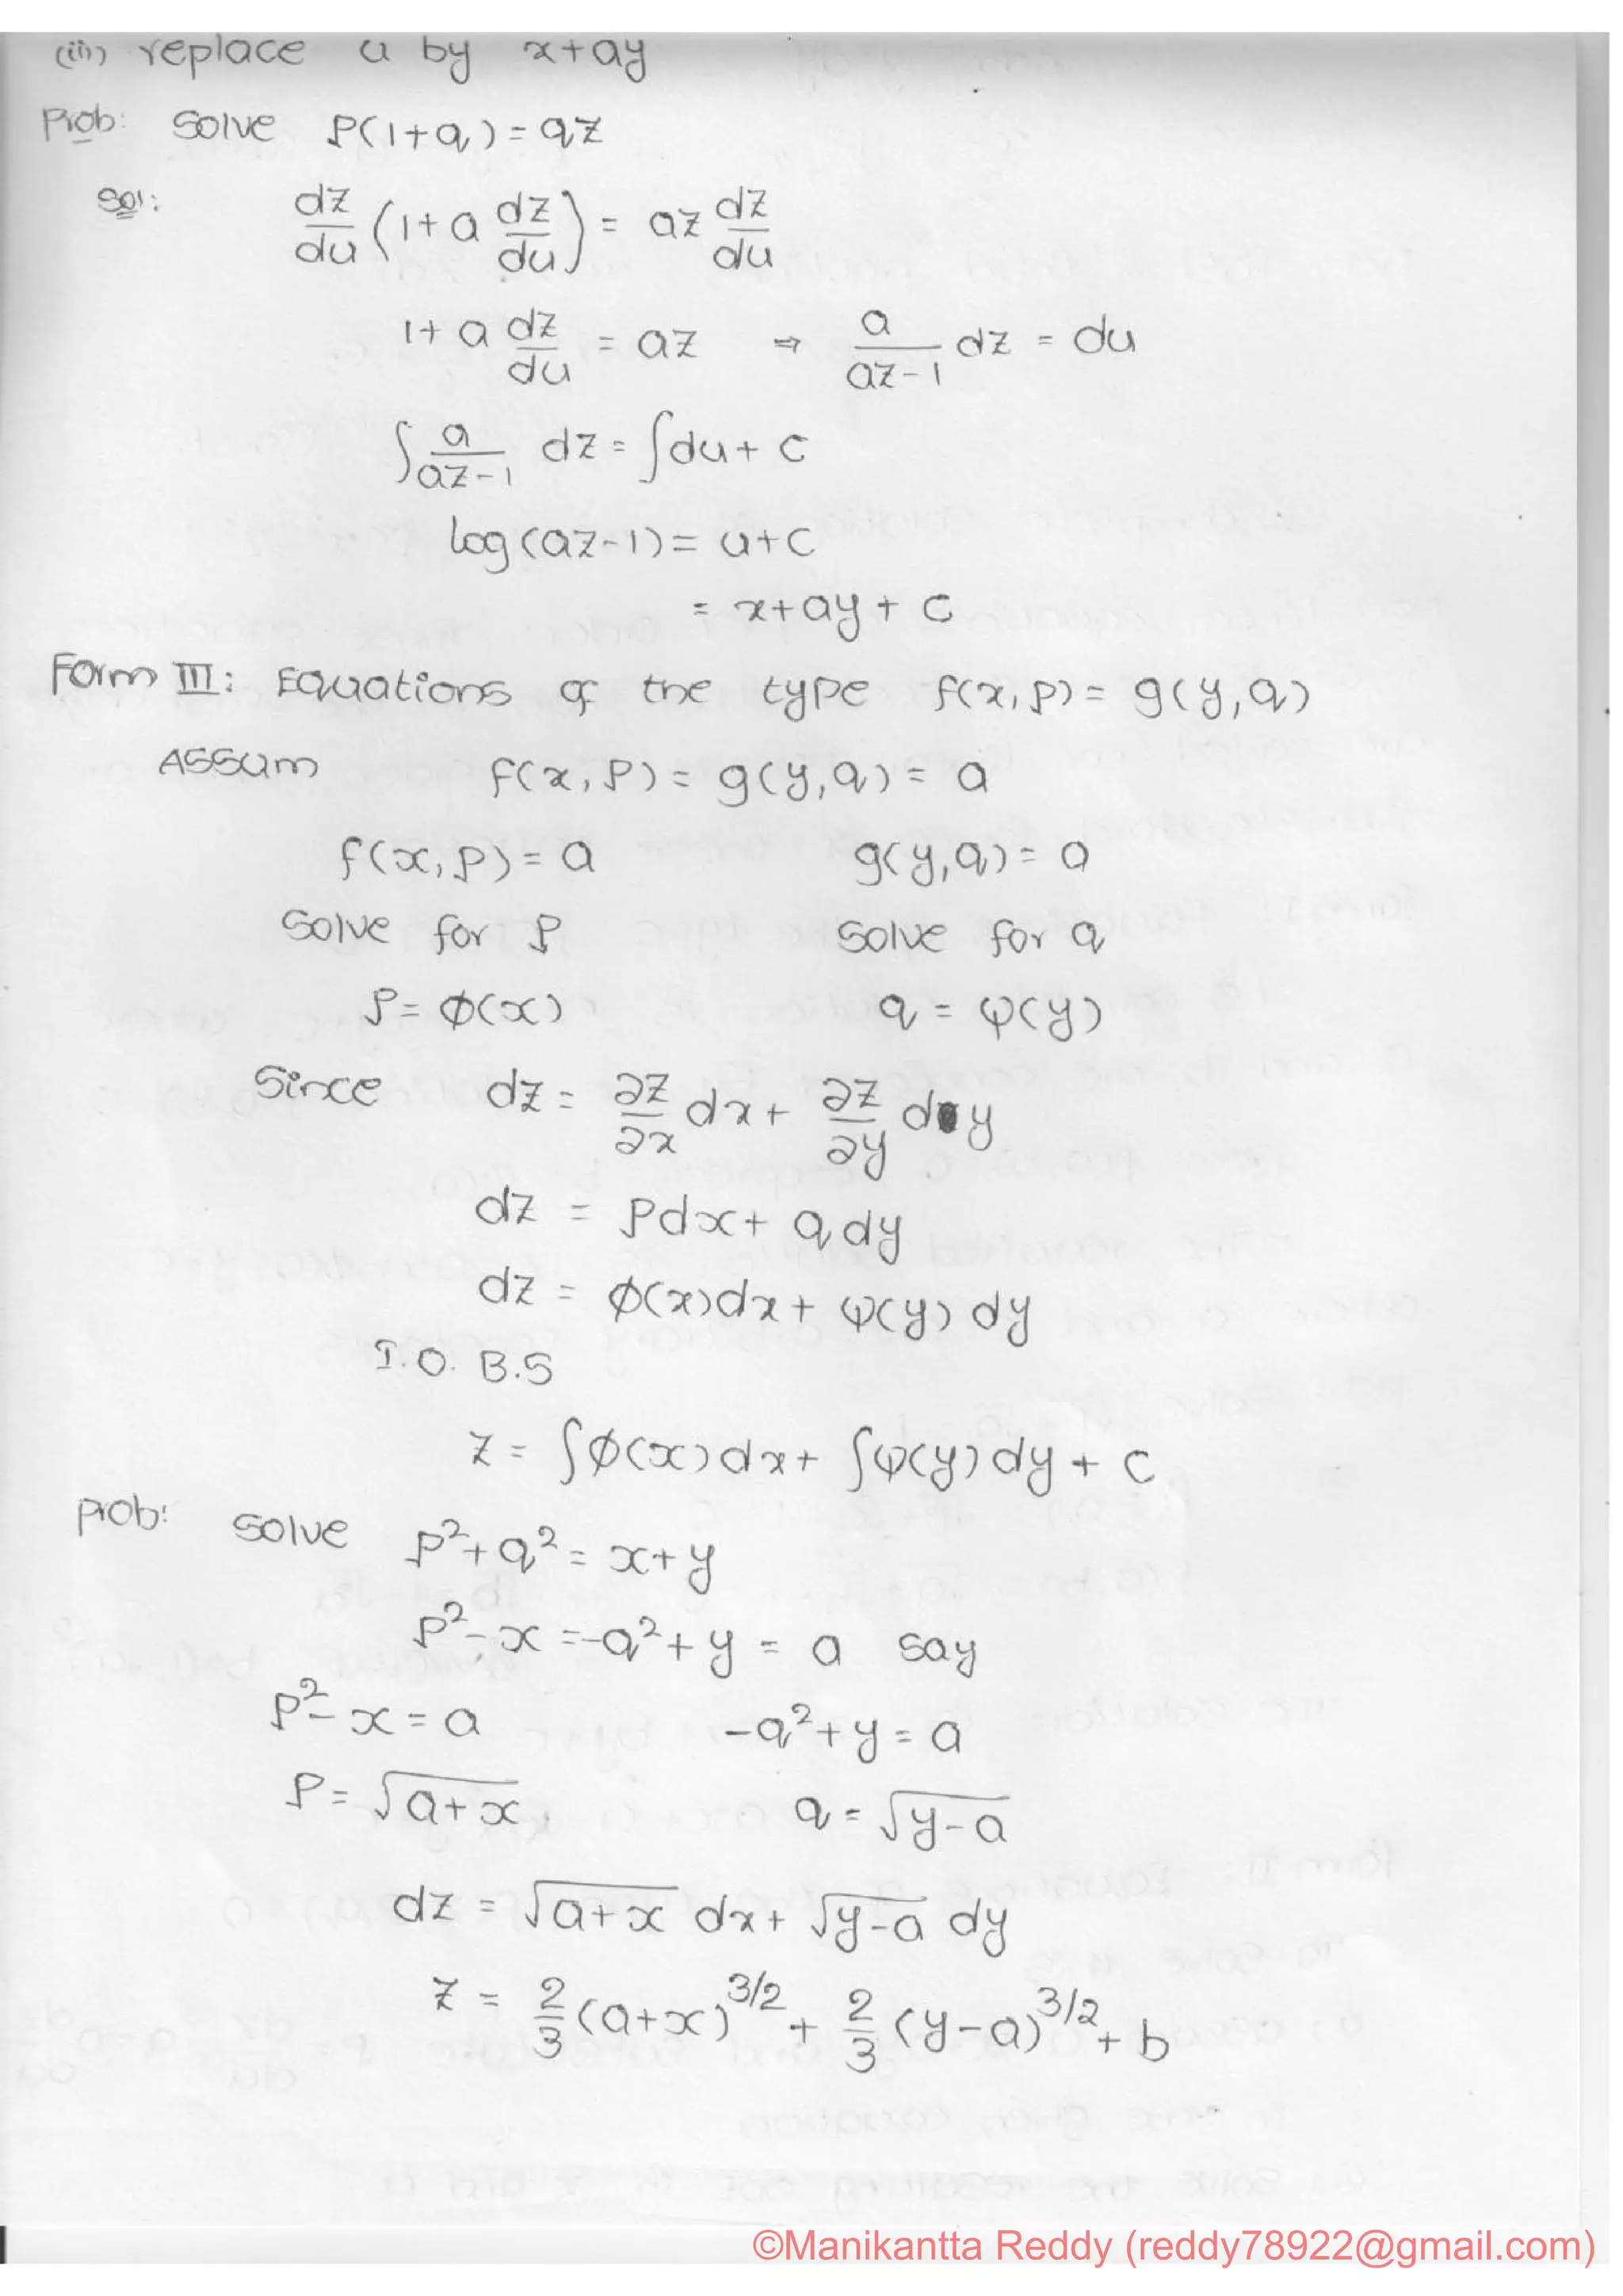 (iii) replace u by x+ay
Prob: Solve P(1+q)=qz
Sol: dz/du (1+a dz/du) = az dz/du
1+a dz/du = az ⇒ a/(az-1) dz = du
∫ a/(az-1) dz = ∫du + c
log(az-1) = u+c
= x+ay+c
Form III: Equations of the type f(x,p) = g(y,q)
Assum f(x,p) = g(y,q) = a
f(x,p) = a g(y,q) = a
Solve for p Solve for q
p = φ(x) q = ψ(y)
Since dz = ∂z/∂x dx + ∂z/∂y dy
dz = pdx + qdy
dz = φ(x)dx + ψ(y) dy
I.O.B.S
z = ∫φ(x)dx + ∫ψ(y)dy + c
Prob: Solve p²+q² = x+y
p²-x = -q²+y = a say
p²-x = a -q²+y = a
p = √(a+x) q = √(y-a)
dz = √(a+x) dx + √(y-a) dy
z = 2/3 (a+x)^3/2 + 2/3 (y-a)^3/2 + b
©Manikantta Reddy (reddy78922@gmail.com)